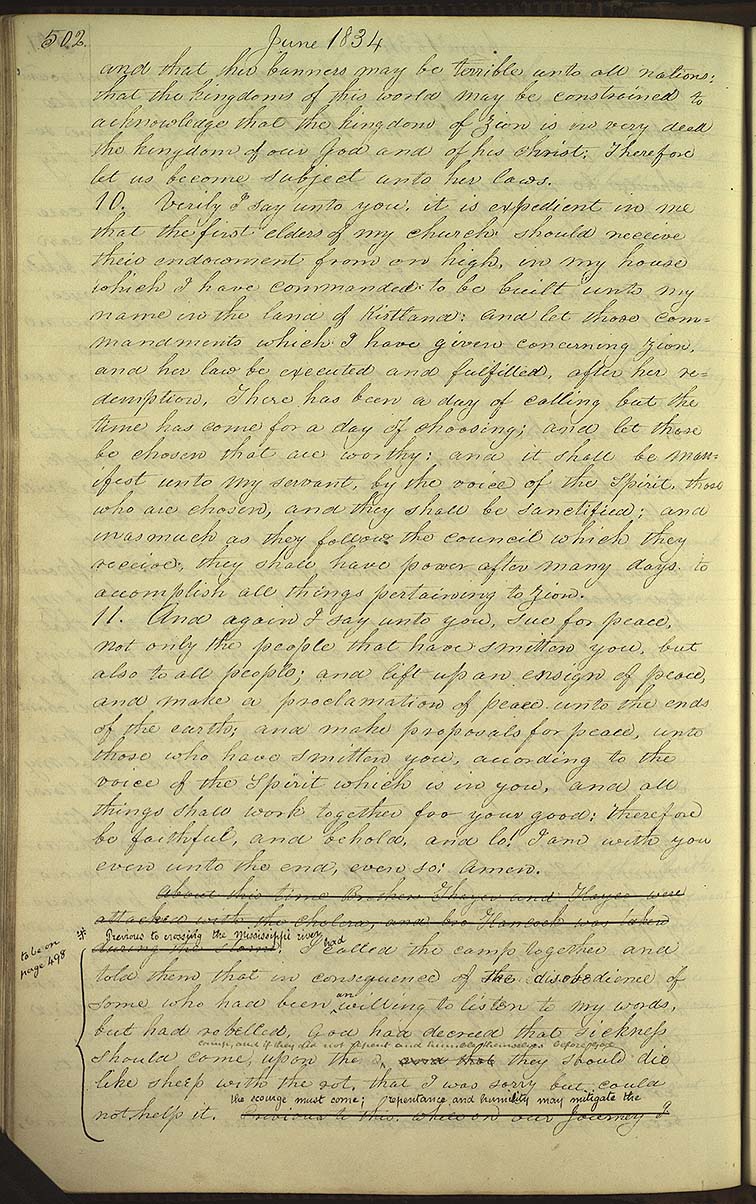 502.
June 1834
and that her banners may be terrible unto all nations;
that the kingdoms of this world may be constrained to
acknowledge that the kingdom of Zion is in very deed
the kingdom of our God and of his Christ; Therefore
let us become subject unto her laws.
10. Verily I say unto you, it is expedient in me
that the first elders of my church should receive
their endowment from on high, in my house
which I have commanded to be built unto my
name in the land of Kirtland: and let those com=
mandments which I have given concerning Zion,
and her law be executed and fulfilled, after her re=
demption. There has been a day of calling but the
time has come for a day of choosing; and let those
be chosen that are worthy: and it shall be man=
ifest unto my servant, by the voice of the Spirit, those
who are chosen, and they shall be sanctified; and
inasmuch as they follow the council which they
receive, they shall have power after many days to
accomplish all things pertaining to Zion.
11. And again I say unto you, sue for peace,
not only the people that have smitten you, but
also to all people; and lift up an ensign of peace,
and make a proclamation of peace unto the ends
of the earth; and make proposals for peace, unto
those who have smitten you, according to the
voice of the Spirit which is in you, and all
things shall work together for your good; therefore
be faithful, and behold, and lo! I am with you
even unto the end, even so; Amen.
About this time Brothers Thayer and Hayes were
attacked with the cholera, and bro Hancock was taken
* Previous to crossing the Mississippi river had
during the storm. I called the camp together and
to be on
page 498
told them that in consequence of the disobedience of
an
some who had been willing to listen to my words,
but had rebelled, God had decreed that sickness
camp, and if they did not repent and humble themselves before
should come upon the and that they should die
like sheep with the rot, that I was sorry but could
the scourge must come; repentance and humility may mitigate the
not help it. Previous to this, while on our Journey I